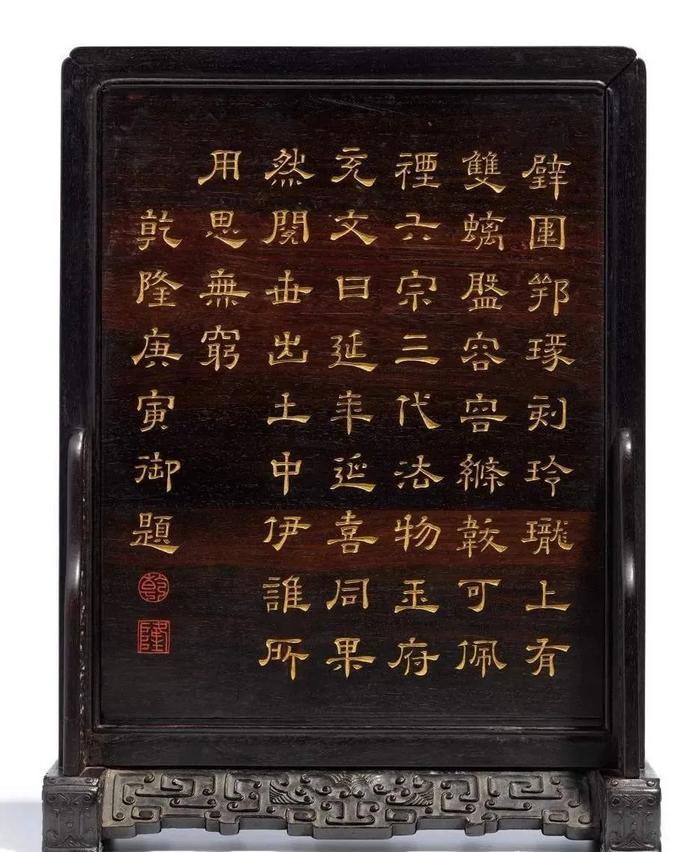 璧圍郛琢刻玲瓏上有
雙螭盤容容絛韍可佩
禋六宗三代法物玉府
充文曰延年延喜同果
然閱世出土中伊誰所
用思無窮
乾隆庚寅御題
乾
隆